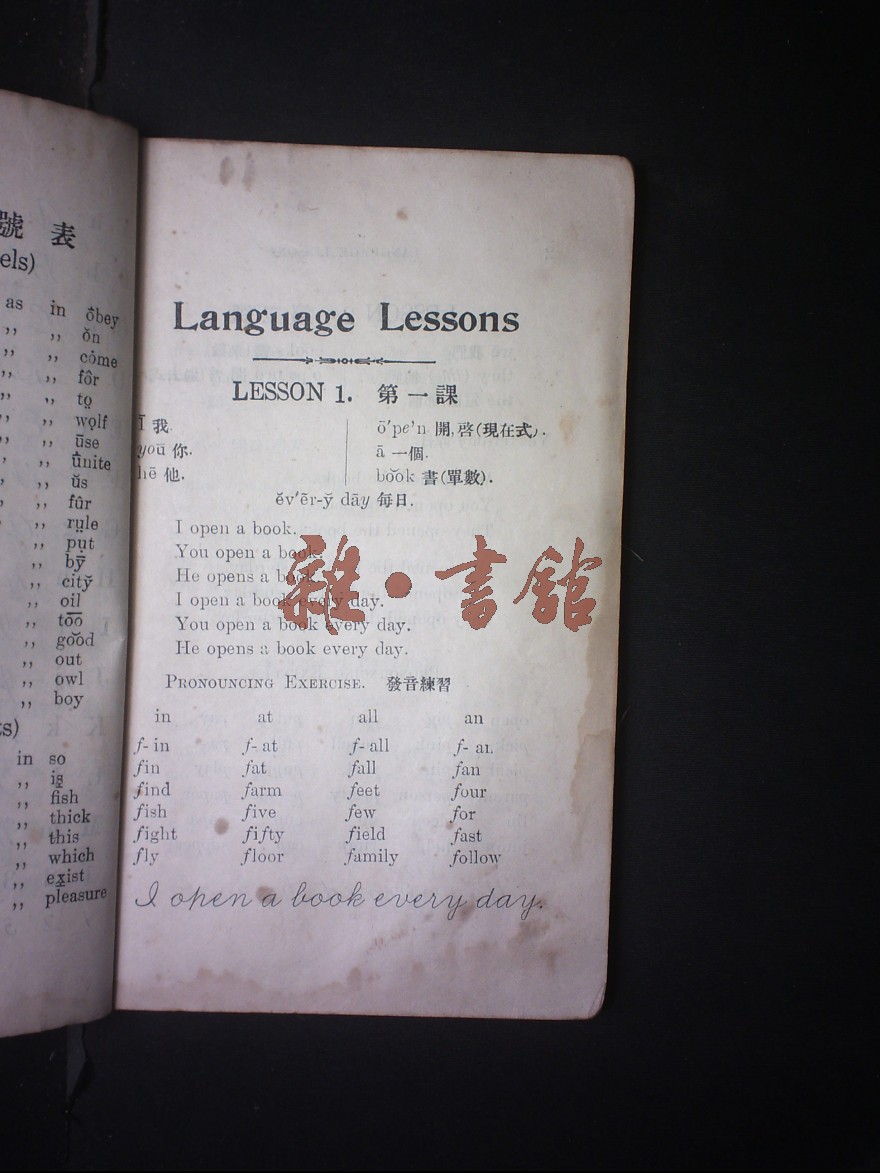 號 表
els)
as in ȯ̂bey
,, ,, ŏn
,, ,, cȯme
,, ,, fôr
,, ,, to̤
,, ,, wo̤lf
,, ūse
,, ûnite
,, ŭs
,, fûr
,, rṳle
,, pụt
,, bȳ
,, citў
,, oil
,, to͞o
,, go͝od
,, out
,, owl
,, boy
ts)
in so
,, is̱
,, fish
,, thick
,, this
,, which
,, ex̱ist
,, pleasure
Language Lessons
LESSON 1. 第一課
Ī 我.
yoū 你.
hē 他.
ō′pe′n 開, 啓 (現在式).
ā 一個.
bo͝ok 書 (單數).
ĕv′ẽr-y̆ dāy 每日.
I open a book.
You open a book.
He opens a book.
I open a book every day.
You open a book every day.
He opens a book every day.
PRONOUNCING EXERCISE. 發音練習
in at all an
f- in f- at f- all f- an
fin fat fall fan
find farm feet four
fish five few for
fight fifty field fast
fly floor family follow
I open a book every day.
雜·書館